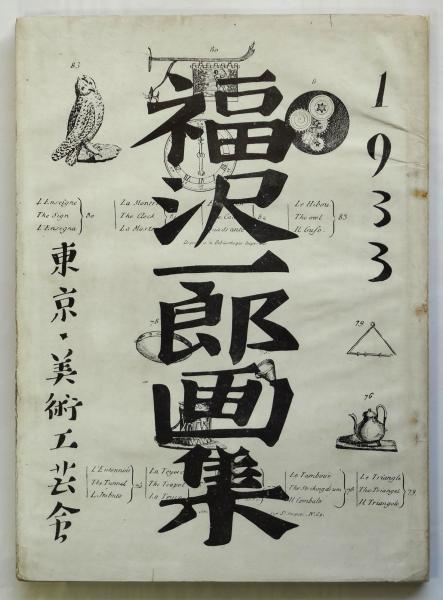 1933
福沢一郎画集
東京・美術工芸会
83
80
L'Enseigne
The Sign
L'Ensegna
80
La Montre
The Clock
La Mostra
82
Le Hibou
The owl
Il Gufo.
83
78
79
76
L'Entonnoir
The Tunnel
L'Imbuto
Le Tambour
Il Cembalo
78
Le Triangle
The Triangel
Il Triangolo
79